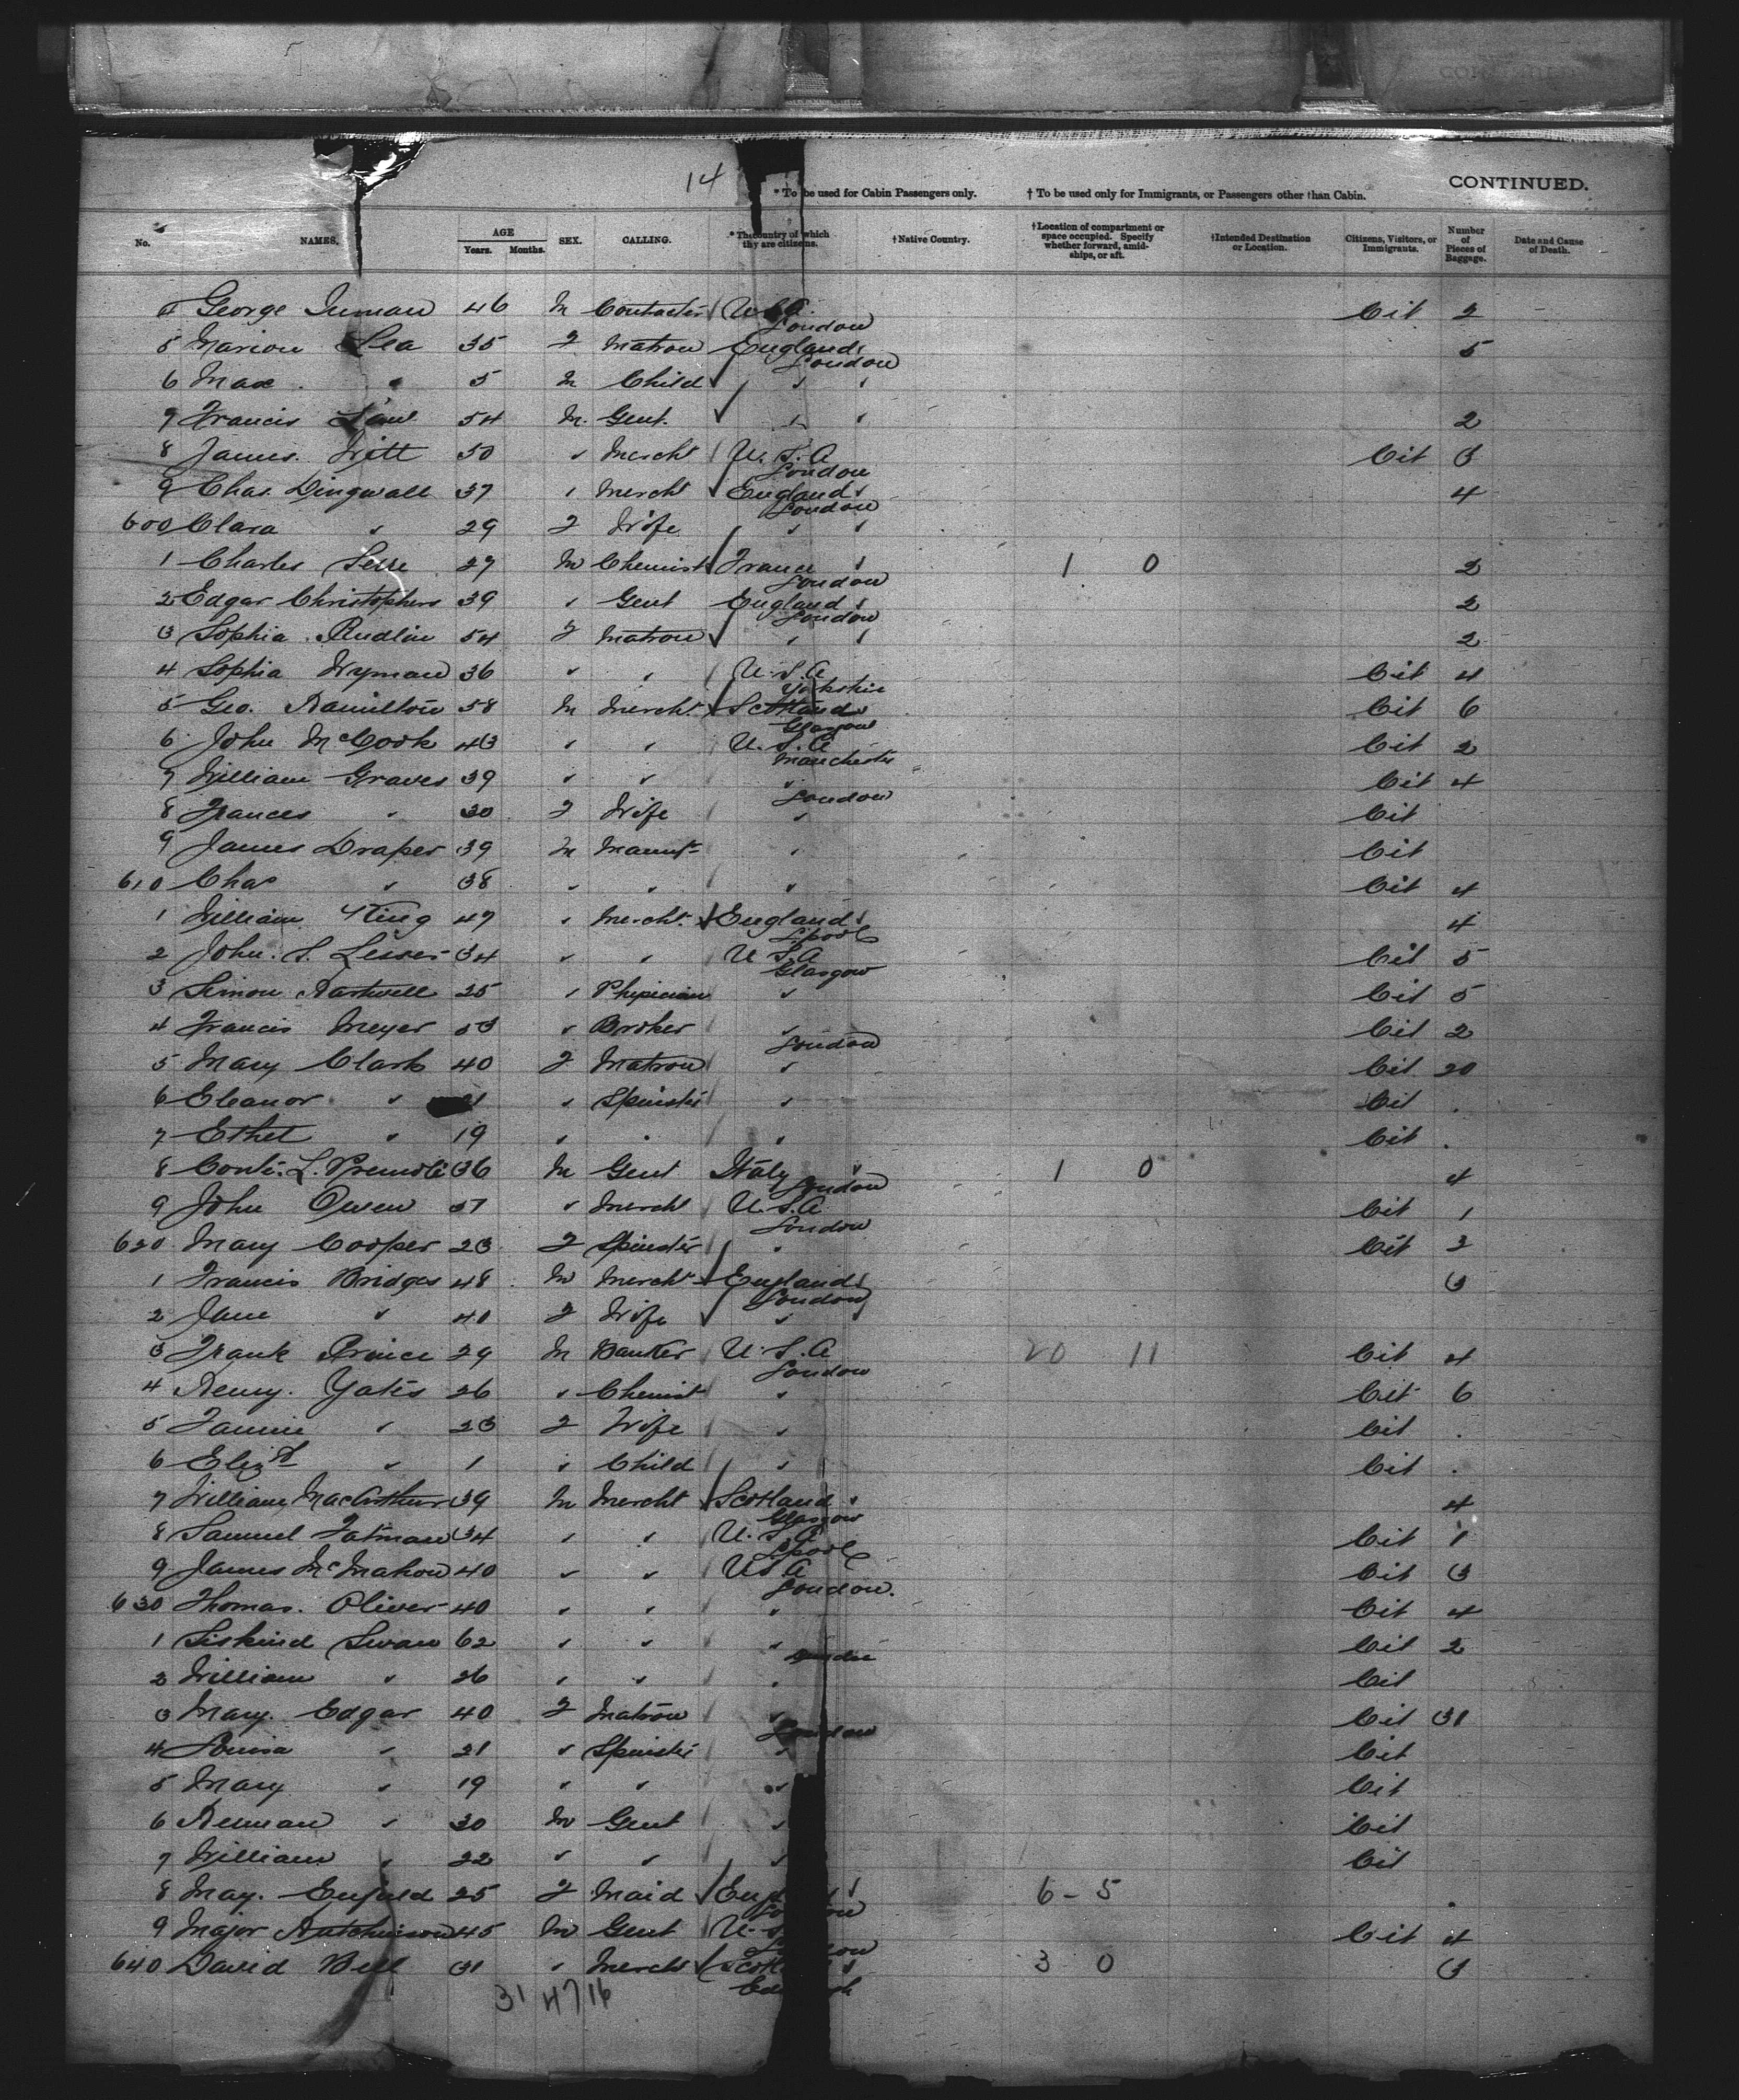 14
* To be used for Cabin Passengers only. † To be used only for Immigrants, or Passengers other than Cabin. CONTINUED.
No. NAMES. AGE Years. Months. SEX. CALLING. * The country of which they are citizens. † Native Country. † Location of compartment or space occupied. Specify whether forward, amidships, or aft. † Intended Destination or Location. Citizens, Visitors, or Immigrants. Number of Pieces of Baggage. Date and Cause of Death.
4 George Inman 46 M Contractor U.S.A. Cit 2
London
5 Marion Lea 35 F Matron England 5
London
6 Max " 5 M Child " "
7 Francis 54 M. Gent. " " 2
8 James Witt 50 " Mercht U.S.A Cit 3
London
9 Chas. Dingwall 37 " Mercht England 4
London
600 Clara " 29 F Wife " "
1 Charles 27 M Chemist France 1 0 2
London
2 Edgar Christophers 39 " Gent England 2
London
3 Sophia Rudlin 54 F Matron " " 2
4 Sophia Wyman 36 " " U.S.A Cit 4
Yorkshire
5 Geo. Hamilton 58 M Mercht Scotland Cit 6
Glasgow
6 John McCook 43 " " U.S.A Cit 2
Manchester
7 William Graves 39 " " " Cit 4
London
8 Frances " 30 F Wife " Cit
9 James Draper 39 M Manuf " Cit
610 Chas " 38 " " " Cit 4
1 William King 47 " Mercht England 4
L'pool
2 John S. 34 " " U.S.A Cit 5
Glasgow
3 Simon Hartwell 25 " Physician " Cit 5
4 Francis Meyer 53 " Broker " Cit 2
London
5 Mary Clark 40 F Matron " Cit 20
6 Eleanor " 21 " Spinster " Cit .
7 Ethel " 19 " " " Cit .
8 Conte. L. 36 M Gent Italy 1 0 4
London
9 John Owen 37 " Mercht U.S.A Cit 1
London
620 Mary Cooper 23 F Spinster " Cit 2
1 Francis Bridges 48 M Mercht England 3
London
2 Jane " 40 F Wife " "
3 Frank Prince 29 M Banker U.S.A 20 11 Cit 4
London
4 Henry Yates 26 " Chemist " Cit 6
5 Fannie " 23 F Wife " Cit .
6 Elizth " 1 " Child " Cit .
7 William MacArthur 39 M Mercht Scotland 4
Glasgow
8 Samuel Fatman 34 " " U.S.A Cit 1
L'pool
9 James McMahon 40 " " USA Cit 3
London.
630 Thomas Oliver 40 " " " Cit 4
1 Siskind Swan 62 " " " Cit 2
2 William " 26 " " " Cit
3 Mary Edgar 40 F Matron " Cit 31
London
4 Louisa " 21 " Spinster " Cit
5 Mary " 19 " " " Cit
6 Herman " 30 M Gent " Cit
7 William " 22 " " " Cit
8 May. Enfield 25 F Maid 6 - 5 .
9 Major Hutchinson 45 M Gent Cit 4
640 David Bell 31 " Mercht 3 0 3
31 47 16